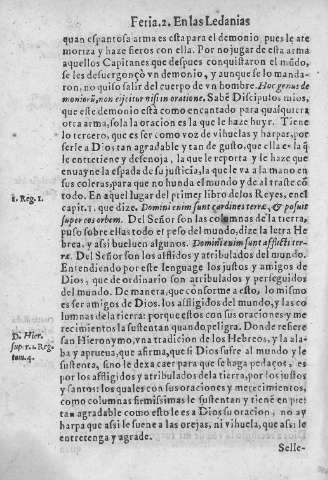 Feria.2. En las Ledanias
quan espantosa arma es esta para el demonio, pues le ate
moriza y haze fieros con ella. Por no jugar de esta arma
aquellos Capitanes que despues conquistaron el mũdo,
se les desuergonçò vn demonio, y aunque se lo manda-
ron, no quiso salir del cuerpo de vn hombre. Hoc genus dę
moniorũ, non eijcitur nisi in oratione. Sabè Discipulos mios,
que este demonio està como encantado para qualquiera
otra arma, sola la oracion es la que le haze huyr. Tiene
lo tercero, que es ser como voz de vihuelas y harpas, por
serle a Dios tan agradable y tan de gusto, que ella es la q̃
le entretiene y desenoja, la que le reporta y le haze que
enuayne la espada de su justicia, la que le va a la mano en
sus coleras, para que no hunda el mundo y de al traste cõ
todo. En aquel lugar del primer libro de los Reyes, en el
1. Reg. 1.
capit. 1. que dize. Domini enim sunt cardines terræ, & posuit
super eos orbem. Del Señor son las columnas de la tierra,
puso sobre ellas todo el peso del mundo, dize la letra He
brea, y assi bueluen algunos. Domini enim sunt afflicti ter-
ræ. Del Señor son los afligidos y atribulados del mundo.
Entendiendo por este lenguage los justos y amigos de
Dios, que de ordinario son atribulados y perseguidos
del mundo. De manera, que conforme a esto, lo mismo
es ser amigos de Dios, los afligidos del mundo, y las co
lumnas de la tierra: porque estos con sus oraciones y me
recimientos la sustentan quando peligra. Donde refiere
D. Hier.
san Hieronymo, vna tradicion de los Hebreos, y la ala-
sup. r. 1. Reg.
ba y aprueua, que afirma, que si Dios sufre al mundo y le
tom. 4.
sustenta, sino le dexa caer para que se haga pedaços, es
por los afligidos y atribulados de la tierra, por los justos
y santos: los quales con sus oraciones y merecimientos,
como columnas firmissimas le sustentan y tiené en pie:
tan agradable como esto le es a Dios su oracion, no ay
harpa que assi le suene a las orejas, ni vihuela, que assi le
entretenga y agrade.
Selle-